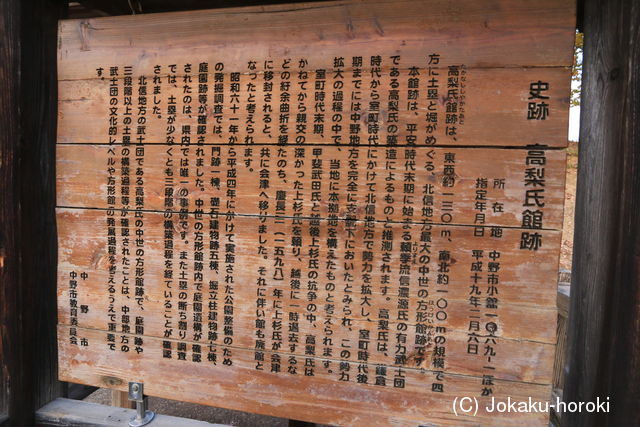 史跡 高梨氏館跡
所在地 中野市小館一〇六九ー一ほか
指定年月日 平成十九年二月六日
高梨氏館跡は、東西約一三〇m、南北約一〇〇mの規模で四
たかなししやかたあと
方に土塁と堀がめぐる、北信地方最大の中世の方形館跡です。
本館跡は、平安時代末期に始まる頼季流信濃源氏の有力武士団
である高梨氏の築造によるものと推測されます。高梨氏は、鎌倉
時代から室町時代にかけて北信地方で勢力を拡大し、室町時代後
期までには中野地方を完全に支配下においたとみられ、この勢力
拡大の過程の中で、当地に本拠地を構えたものと考えられます。
室町時代末期、甲斐武田氏と越後上杉氏の抗争の中、高梨氏は
かねてから親交の深かった上杉氏を頼り、越後に一時退去するな
どの紆余曲折を経たのち、慶長三(一五九八)年に上杉氏が会津
に移封されると、共に会津へ移りました。それに伴い館も廃館と
なったと考えられます。
昭和六十一年から平成四年にかけて実施された公園整備のため
の発掘調査では、門跡一棟、礎石建物跡五棟、掘立柱建物跡七棟、
庭園跡等が確認されました。中世の方形館跡内で庭園遺構が確認
されたのは、県内では唯一の事例です。また土塁の断ち割り調査
では、土塁が少なくとも三段階の構築過程を経ていることが確認
されました。
北信地方の武士団である高梨氏の中世の方形館跡で、庭園跡や
三段階以上の土塁の構築過程等が確認されたことは、中部地方の
武士団の文化的レベルや方形館の発展過程を考えるうえで重要で
す。
中野市
中野市教育委員会
(C) Jokaku-horoki